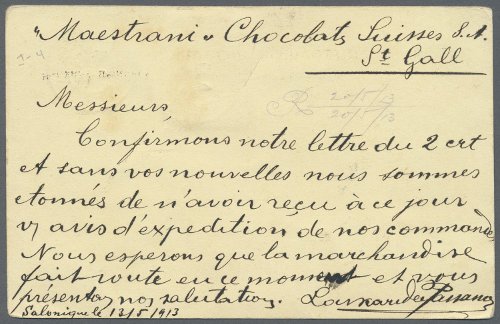 "Maestrani" Chocolats Suisses S.A.
St Gall
1-4
R 20/5/13
20/5/13
Messieurs
Confirmons notre lettre du 2 crt
et sans vos nouvelles nous sommes
etonnés de n'avoir reçu à ce jour
v/ avis d'expedition de nos commandes
Nous esperons que la marchandise
fait route en ce moment et vous
présentons nos salutations.
Salonique le 13/5/913